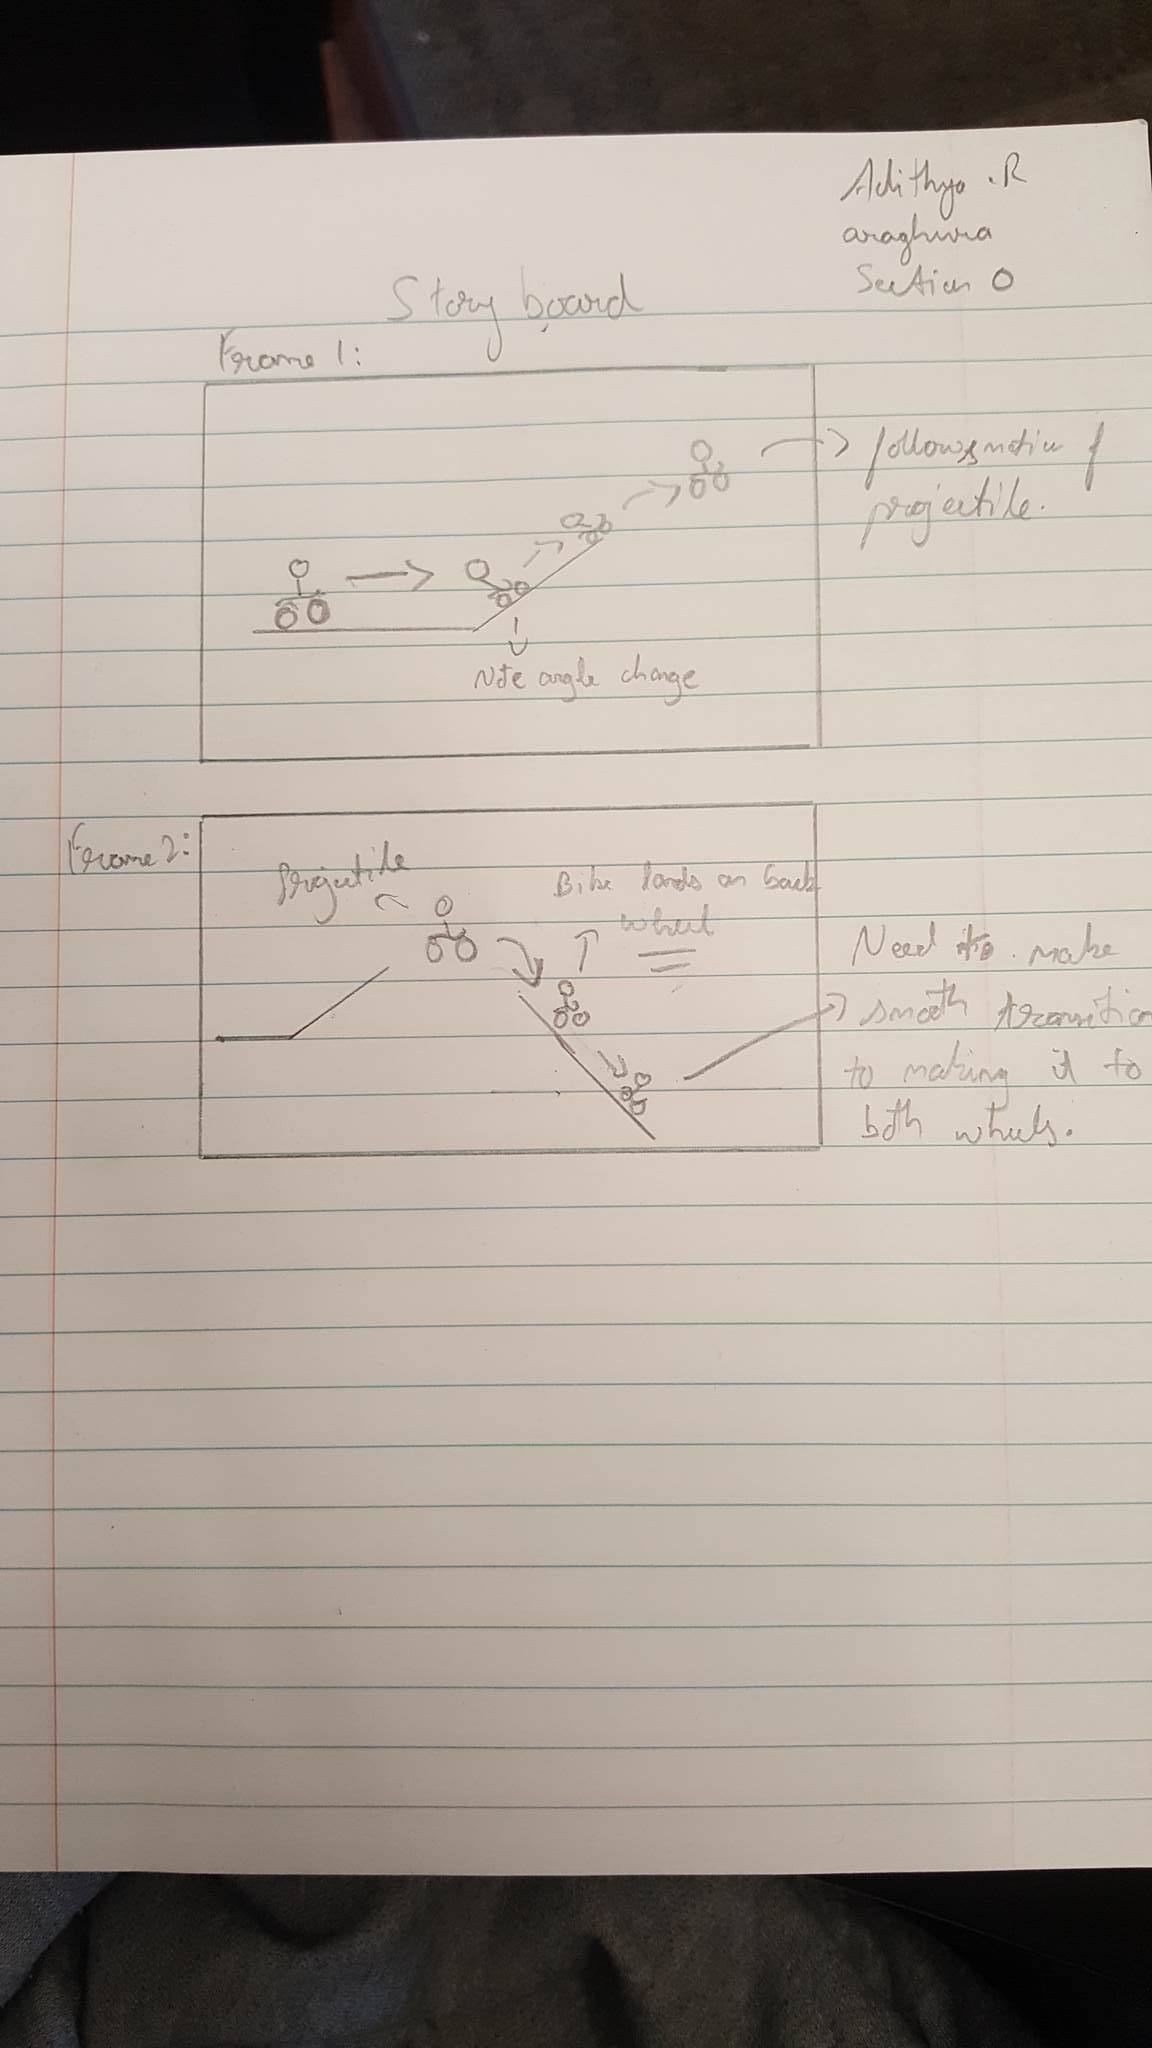 Adithya .R
araghura
Section O
Story board
Frame 1:
follows motion of
projectile.
Note angle change
Frame 2:
Projectile
Bike lands on back
wheel
Need to make
smooth transition
to making it to
both wheels.